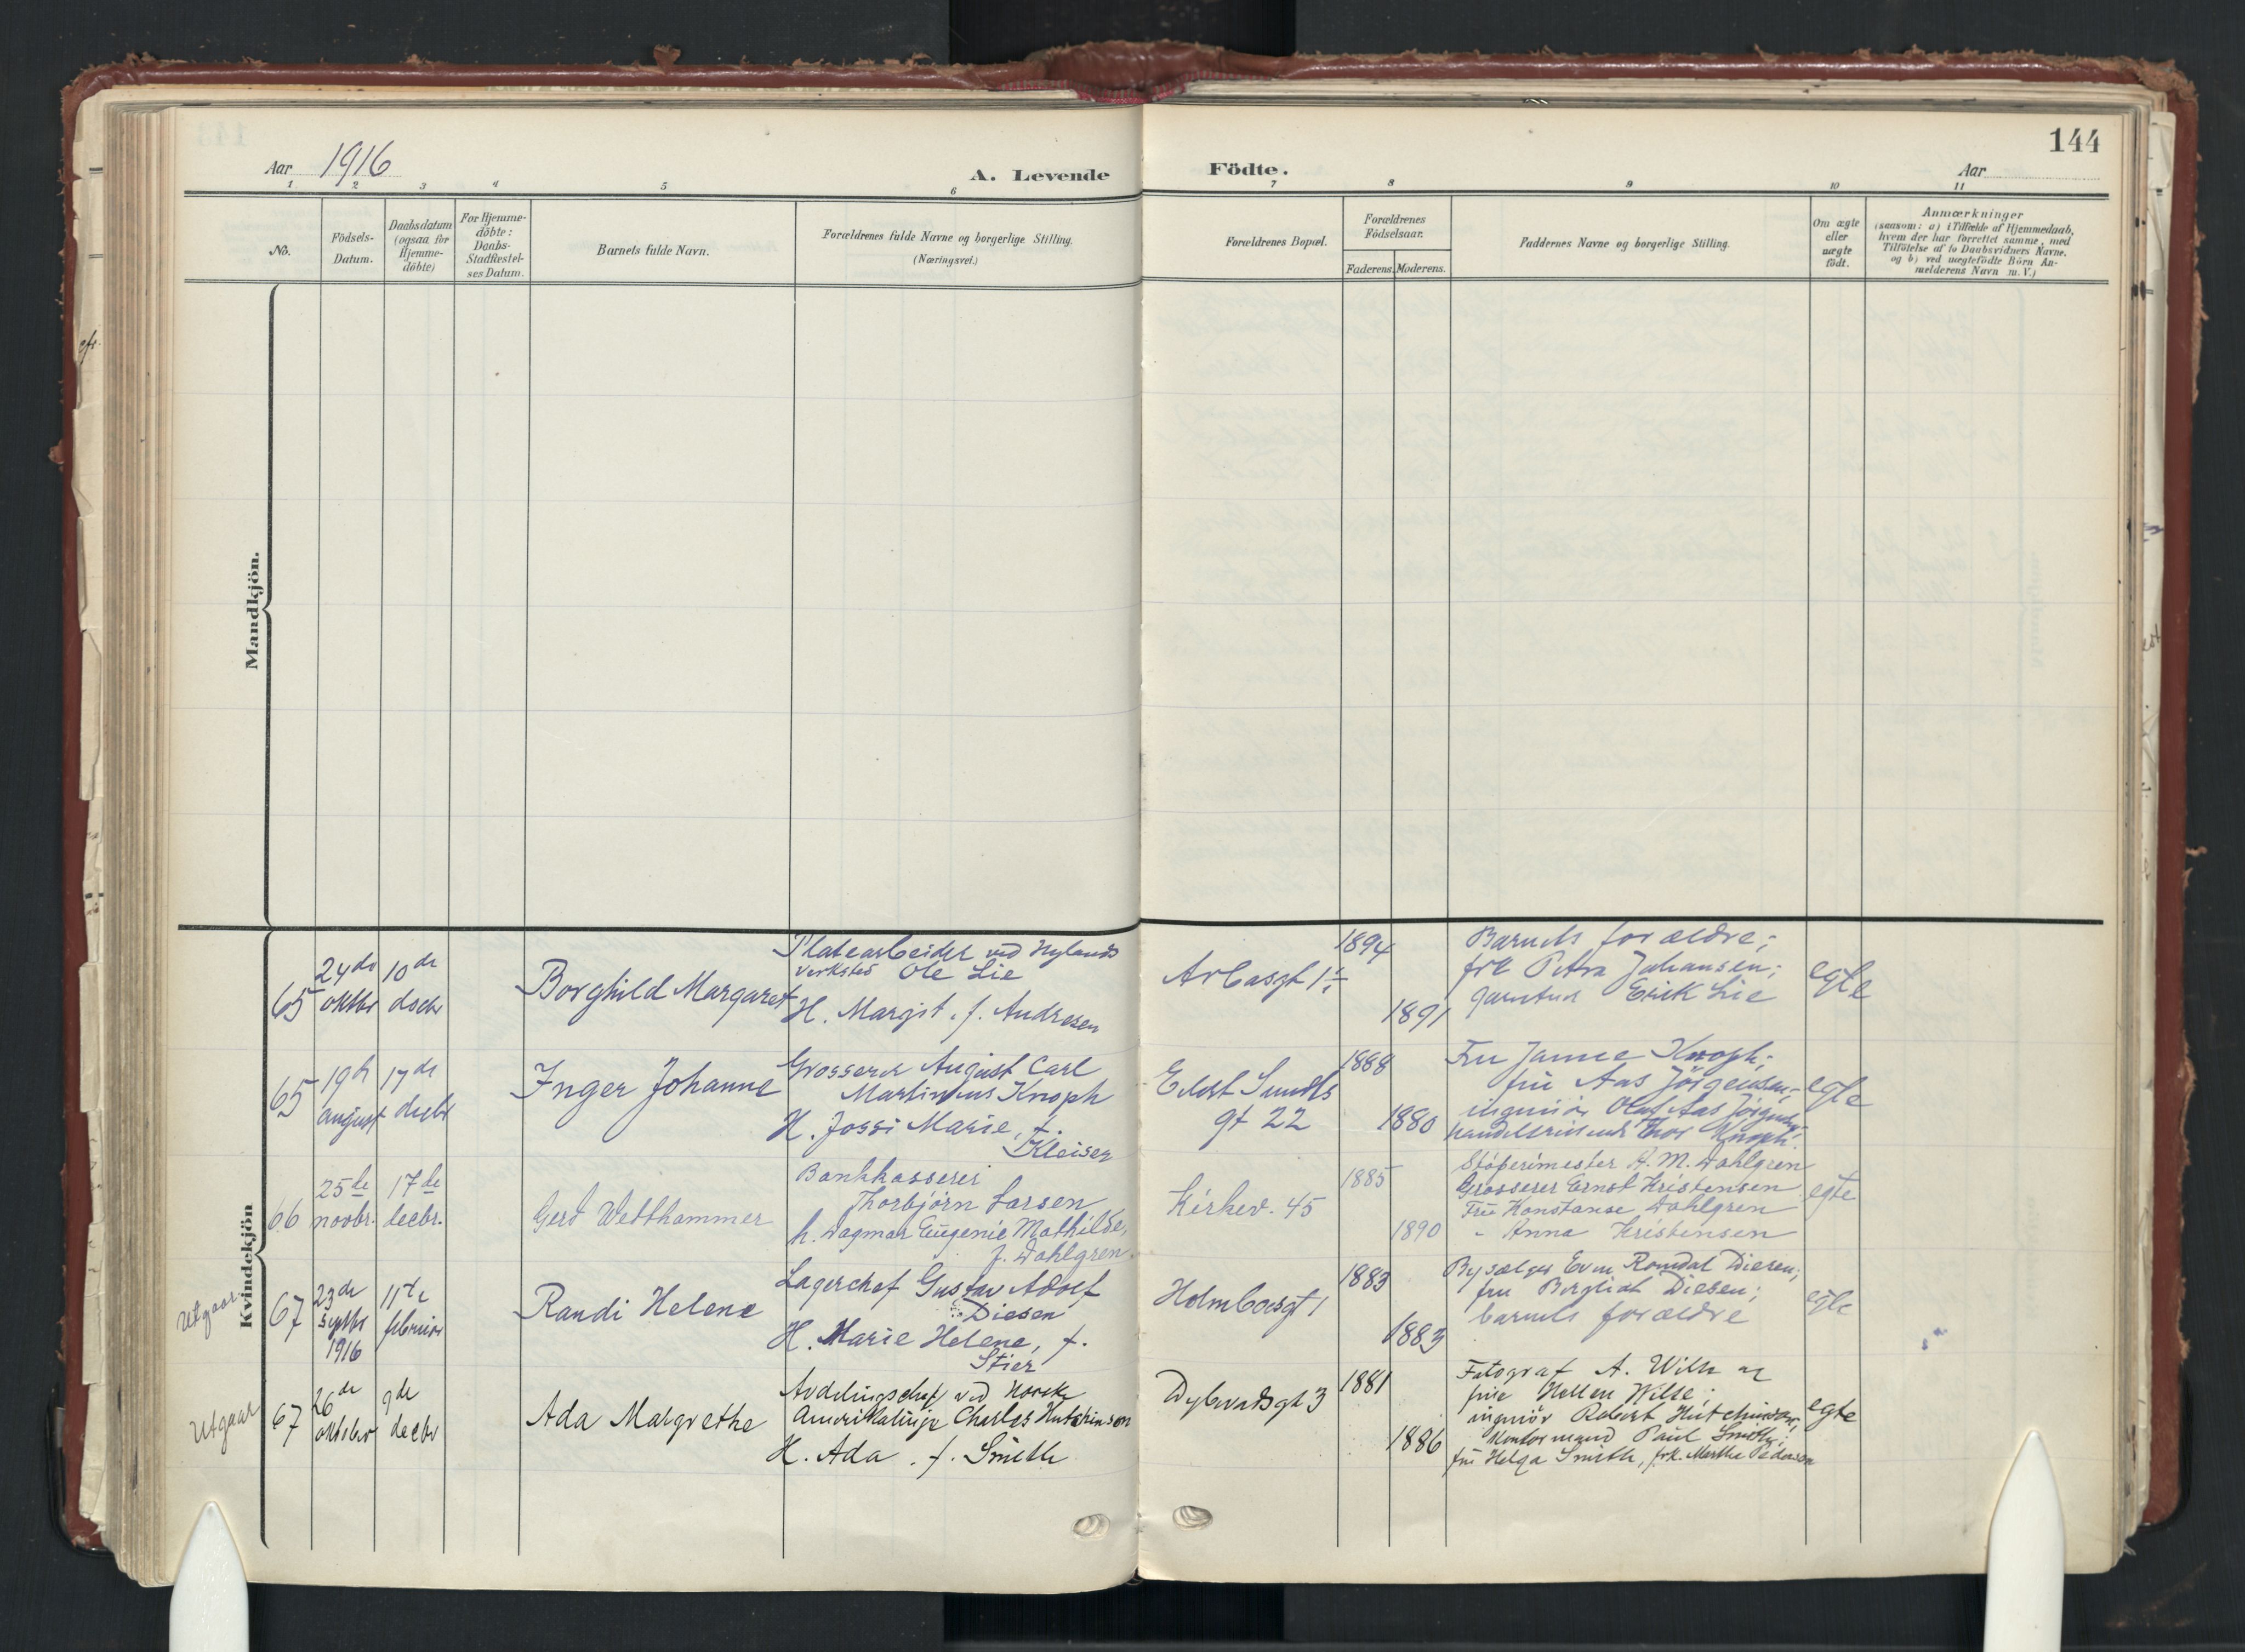 144
Aar 1916
A. Levende Födte.
Aar
1 2 3 4 5 6 7 8 9 10 11
No.
Födsels-
Datum.
Daabsdatum
(ogsaa for
Hjemme-
döbte)
For Hjemme-
döbte:
Daabs-
Stadfæstel-
ses Datum.
Barnets fulde Navn.
Forældrenes fulde Navne og borgerlige Stilling.
(Næringsvei.)
Forældrenes Bopæl.
Forældrenes
Födselsaar.
Faderens. Moderens.
Faddernes Navne og borgerlige Stilling.
Om ægte
eller
uægte
födt.
Anmærkninger
(saasom: a) i Tilfælde af Hjemmedaab,
hvem der har forrettet samme, med
Tilföielse af to Daabsvidners Navne.
og b) ved uægtefödte Börn An-
melderens Navn m. V.)
Mandkjön.
Kvindekjön
65
24de
oktbr
10de
decbr
Borghild Margaret
Platearbeider ved Nylands
verksted Ole Lie
H. Margit, f. Andresen
1894
1891
Barnets forældre;
frk Petra Johansen;
Erik Lie
egte
65
19de
august
17de
decbr
Inger Johanne
Grosserer August Carl
Martinius Knoph
H. Jossi Marie, f.
Kleisen
Eilert Sundts
gt 22
1888
1880
Fru Janne Knoph;
fru Aas Jörgensen;
ingeniör Olaf Aas Jörgensen;
handelsreisende Thor Knoph.
egte
66
25de
novbr.
17de
decbr.
Gerd Wetthammer
Bankkasserer
Thorbjörn Larsen
h. Dagmar Eugenie Mathilde,
f. Dahlgren
Kirkev. 45
1885
1890
Stöperimester A. M. Dahlgren
Grosserer Ernst Kristensen
Fru Konstanse Dahlgren
- Anna Kristensen
egte
Utgaar.
67
23de
septbr
1916
11te
februar
Randi Helene
Lagerchef Gustav Adolf
Diesen
H. Marie Helene, f.
Stier
Holmboesgt 1
1883
1883
Bysælger Even Romdal Diesen;
fru Bergliot Diesen;
barnets forældre
egte
Utgaar
67
26de
oktober
9de
decbr
Ada Margrethe
Avdelingschef ved Norske
Amerikalinje Charles Hutchinson
H. Ada, f. Smith
Dybwadsgt 3
1881
1886
Fotograf A. Wilse og
frue Hellen Wilse;
ingeniör Robert Hutchinson;
Kontormand Paul Smith;
fru Helga Smith, frk. Marthe Pedersen
egte